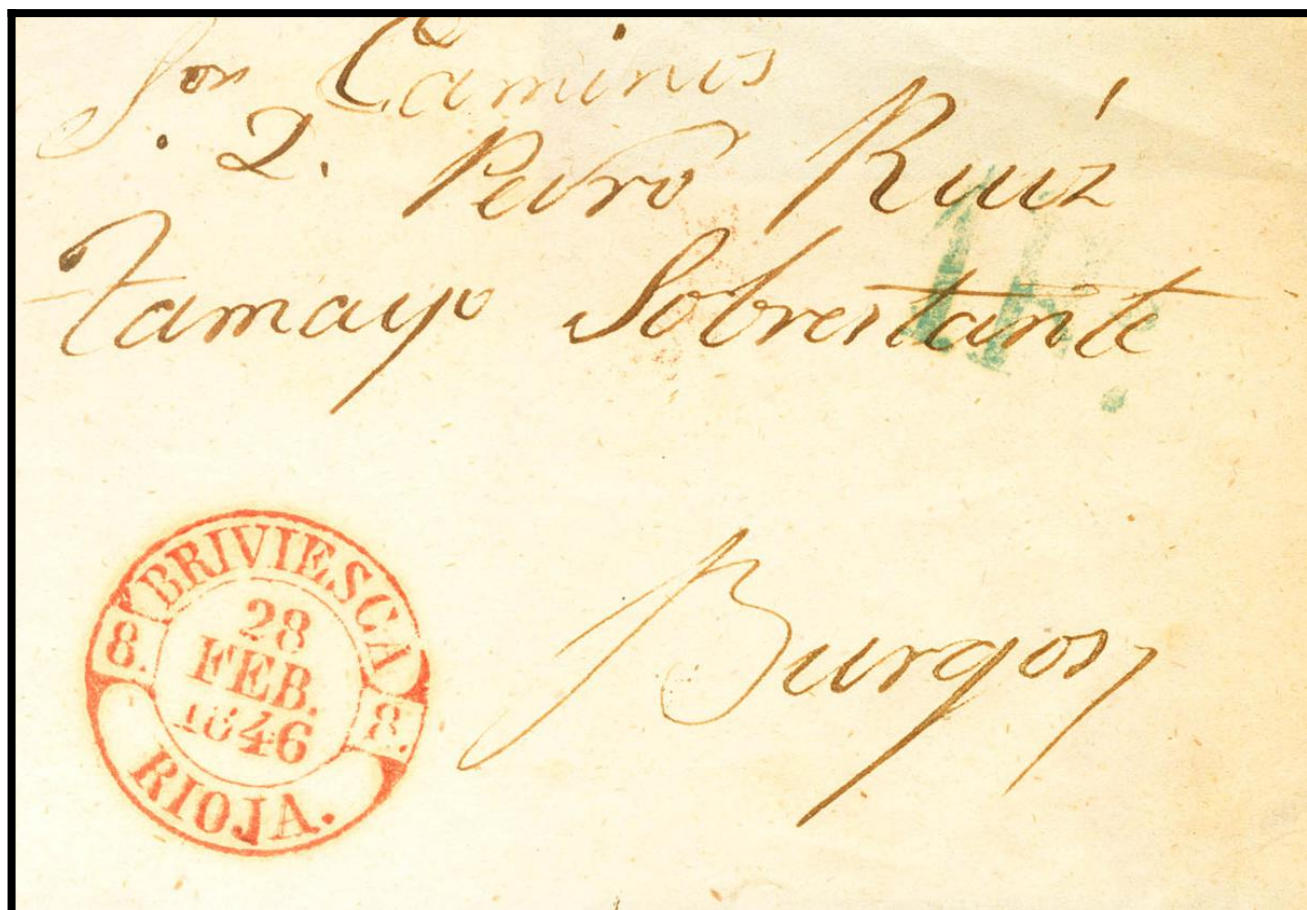 Sor Caminos
D. Pedro Ruíz
Tamayo Sobrestante
Burgos
BRIVIESCA
8. 8.
28
FEB.
1846
RIOJA.